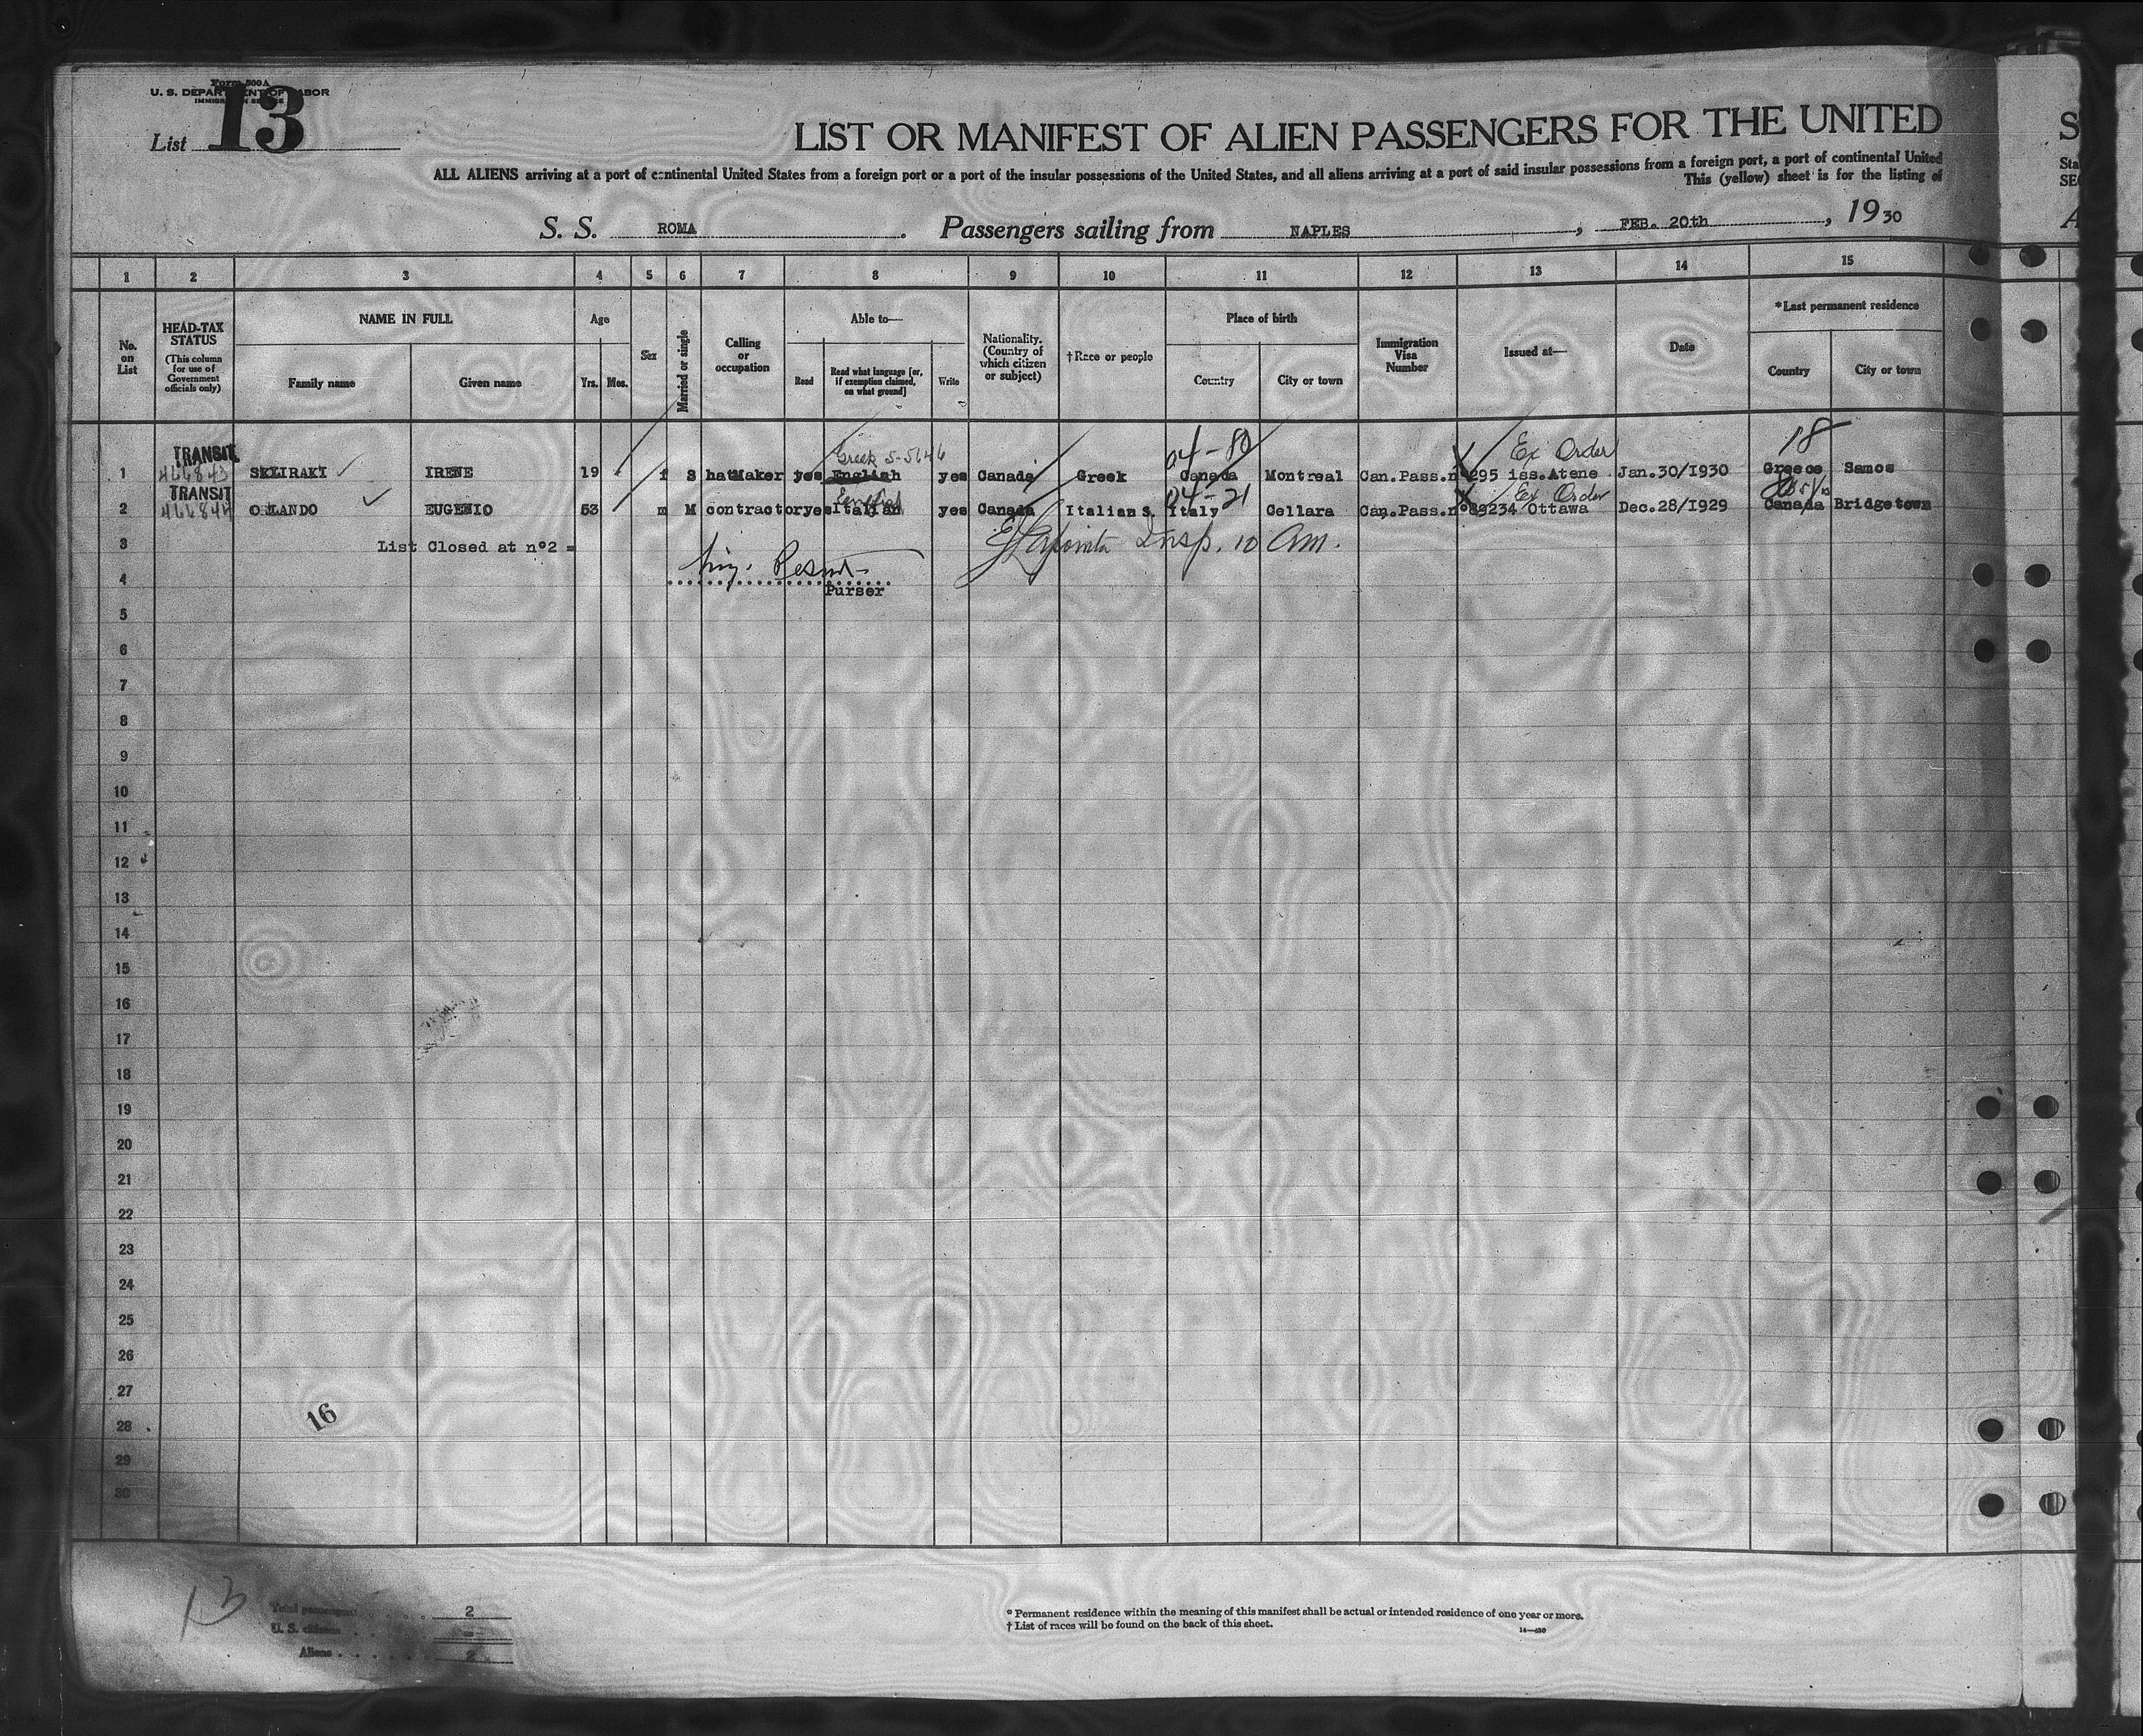 Form 500A
U. S. DEPARTMENT OF LABOR
IMMIGRATION SERVICE
List 13
LIST OR MANIFEST OF ALIEN PASSENGERS FOR THE UNITED
ALL ALIENS arriving at a port of continental United States from a foreign port or a port of the insular possessions of the United States, and all aliens arriving at a port of said insular possessions from a foreign port, a port of continental United
This (yellow) sheet is for the listing of
S. S. ROMA. Passengers sailing from NAPLES, FEB. 20th, 1930
1 2 3 4 5 6 7 8 9 10 11 12 13 14 15
No. on List
HEAD-TAX STATUS
(This column for use of Government officials only)
NAME IN FULL
Family name Given name
Age
Yrs. Mos.
Sex
Married or single
Calling or occupation
Able to—
Read
Read what language [or, if exemption claimed, on what ground]
Write
Nationality. (Country of which citizen or subject)
†Race or people
Place of birth
Country City or town
Immigration Visa Number
Issued at—
Date
*Last permanent residence
Country City or town
TRANSIT Greek 5-5646 04-80 Ex Order 18
1 466843 SKLIRAKI IRENE 19 f S hatMaker yes English yes Canada Greek Canada Montreal Can.Pass.nº295 iss.Atene Jan.30/1930 Greece Samos
TRANSIT English 04-21 Ex Order
2 466844 ORLANDO EUGENIO 53 m M contractor yes Italian yes Canada Italian S. Italy Cellara Can.Pass.nº89234 Ottawa Dec.28/1929 Canada Bridgetown
3 List Closed at nº2 = Insp. 10 am.
4
Purser
5
6
7
8
9
10
11
12
13
14
15
16
17
18
19
20
21
22
23
24
25
26
27
16
28
29
30
13
Total passengers 2
U. S. citizens =
Aliens 2
* Permanent residence within the meaning of this manifest shall be actual or intended residence of one year or more.
† List of races will be found on the back of this sheet.
14—430